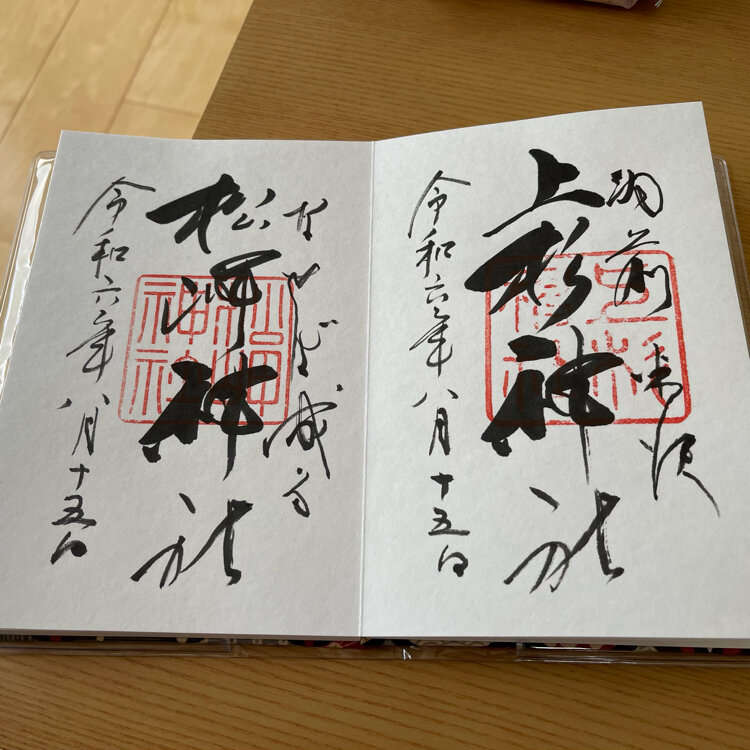 羽前米沢
上杉神社
令和六年八月十五日
なせば成る
松岬神社
令和六年八月十五日